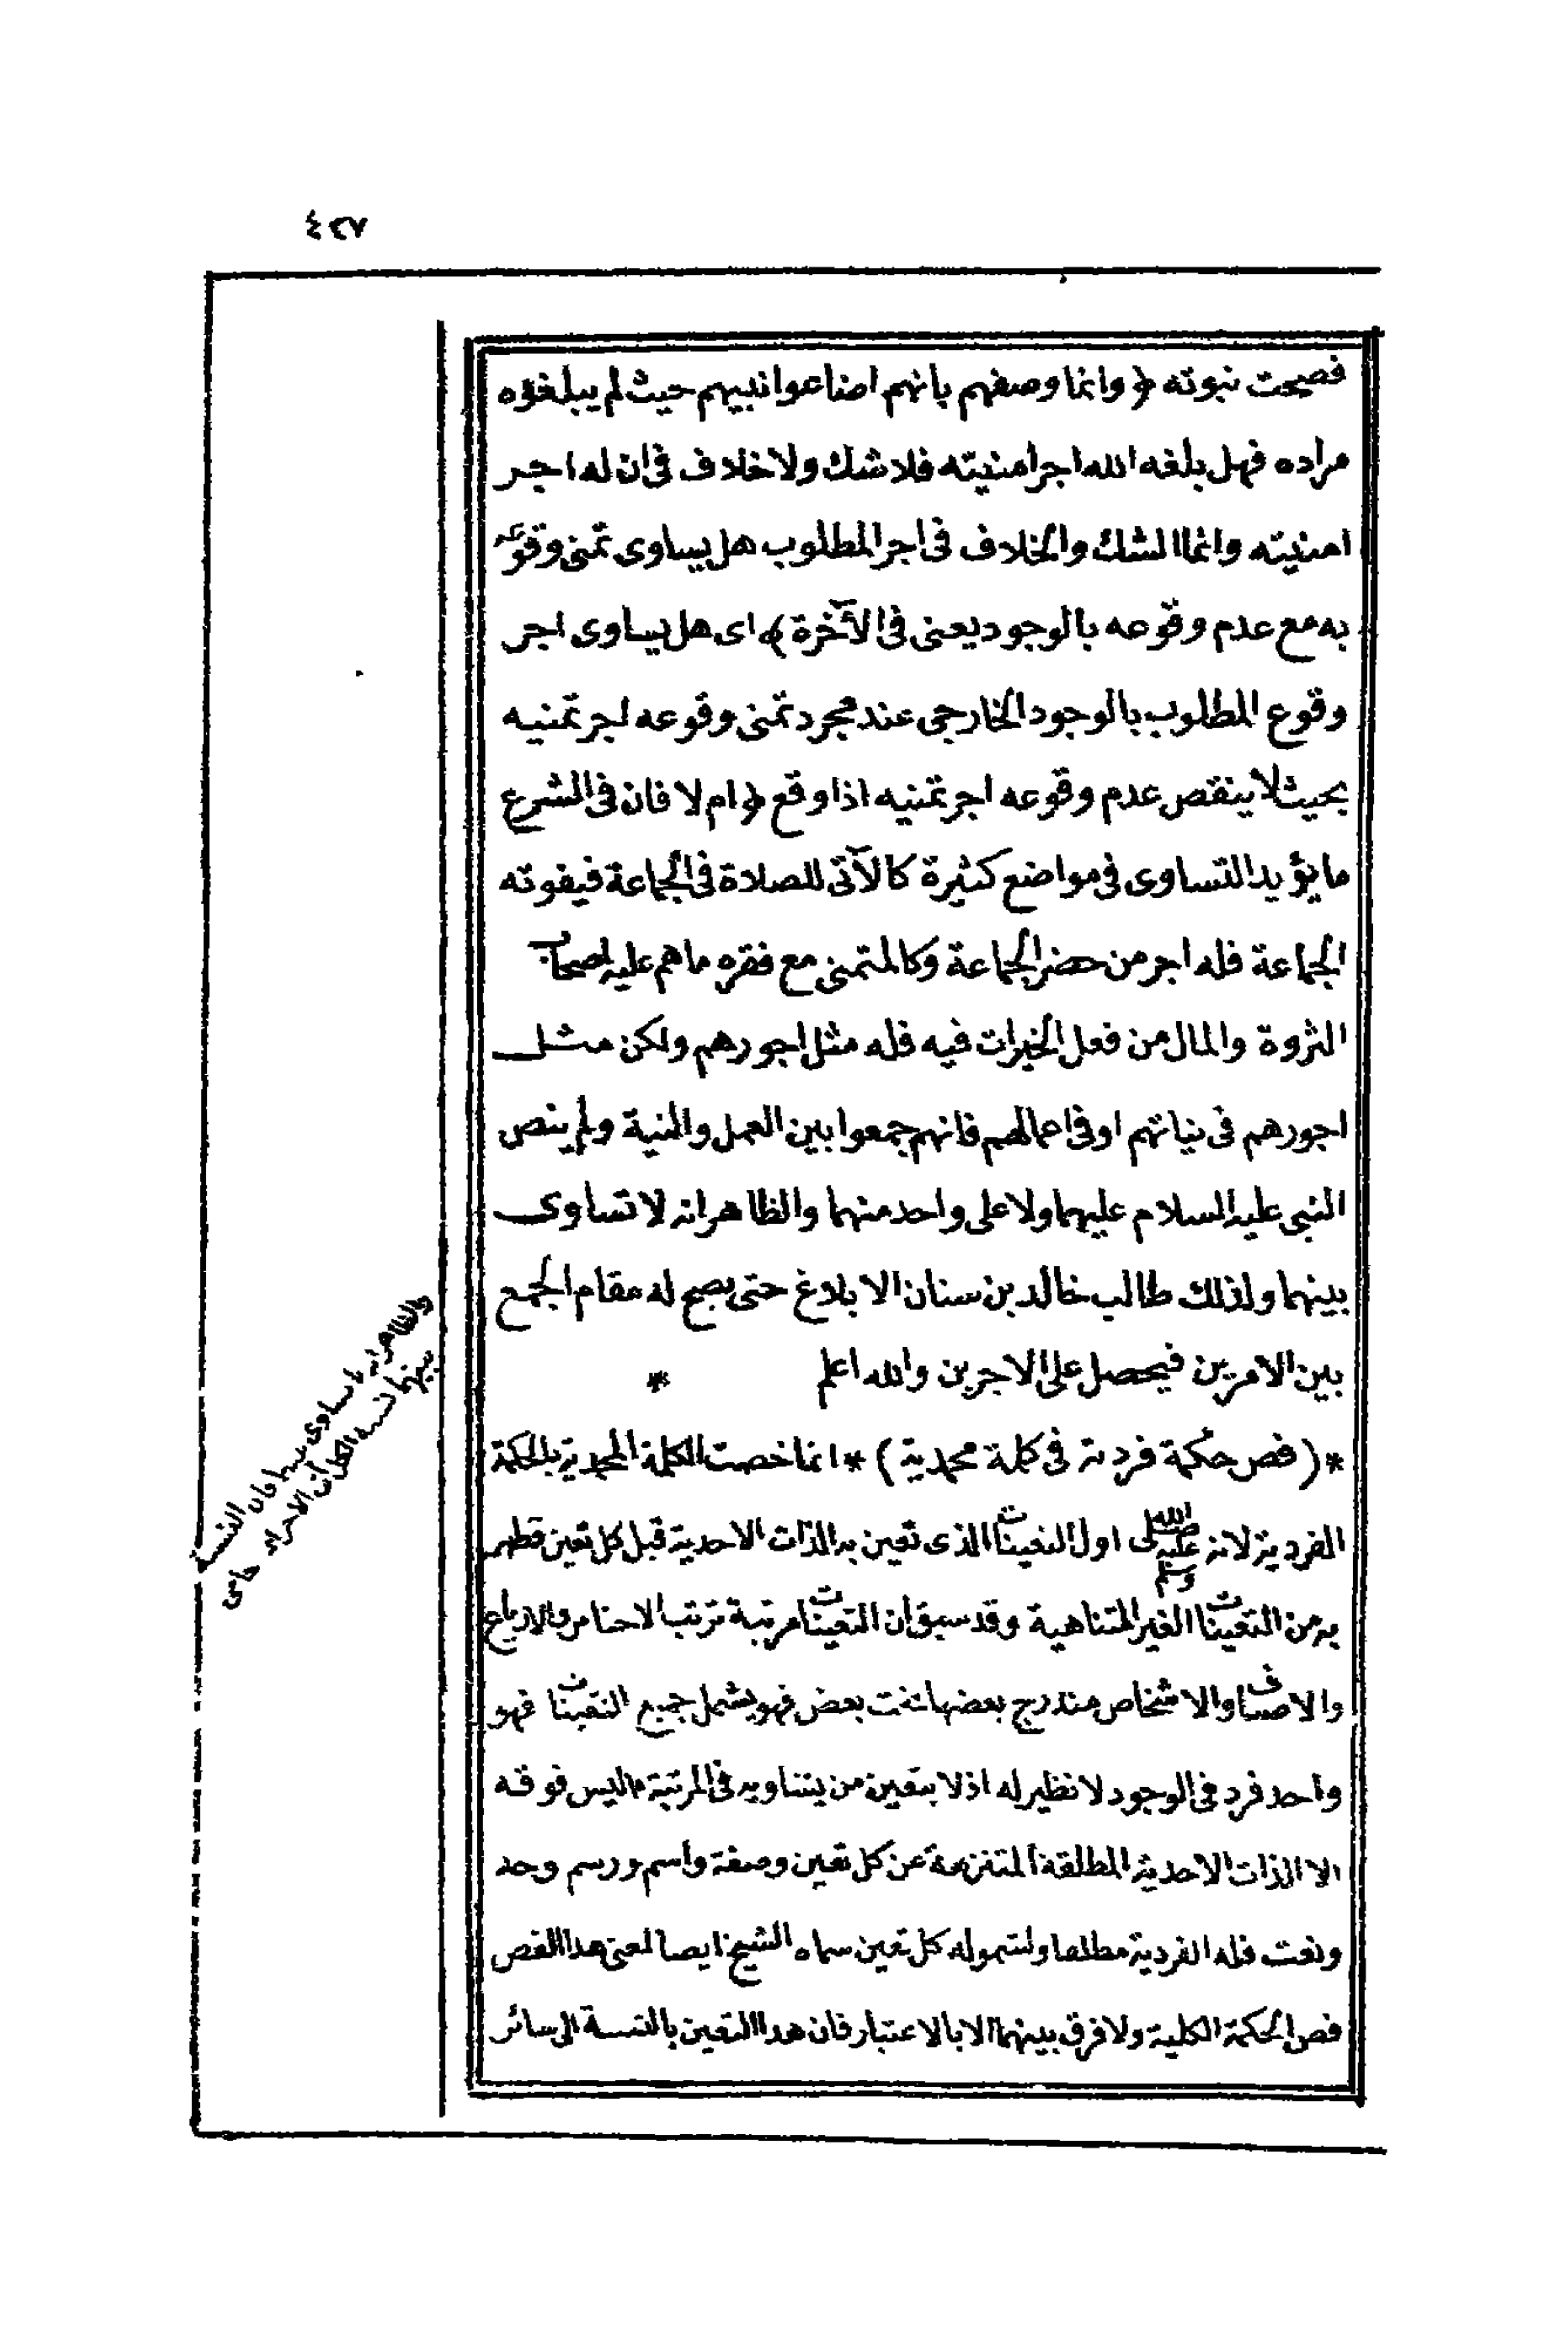 ٤٢٧
فصحت نبوته ﴿ وانما وصفهم بانهم اضاعوا نبيهم حيث لم يبلغوه
مراده فهل بلغه الله اجر امنيته فلا شك ولا خلاف فى ان له اجر
امنيته وانما الشك والخلاف فى اجر المطلوب هل يساوى تمنى وقوعه
به مع عدم وقوعه بالوجود يعنى فى الآخرة ﴾ اى هل يساوى اجر
وقوع المطلوب بالوجود الخارجى عند مجرد تمنى وقوعه اجر تمنيه
بحيث لا ينقص عدم وقوعه اجر تمنيه اذا وقع ﴿ ام لا فان فى الشرع
ما يؤيد التساوى فى مواضع كثيرة كالآتى للصلاة فى الجماعة فيفوته
الجماعة فله اجر من حضر الجماعة وكالمتمنى مع فقره ما هم عليه اصحاب
الثروة والمال من فعل الخيرات فيه فله مثل اجورهم ولكن مثل
اجورهم فى نياتهم او فى اعمالهم فانهم جمعوا بين العمل والنية ولم ينص
النبى عليه السلام عليهما ولا على واحد منهما والظاهر انه لا تساوى
بينهما ولذلك طالب خالد بن سنان الابلاغ حتى يصح له مقام الجمع
بين الامرين فيحصل على الاجرين والله اعلم *
*( فص حكمة فردية فى كلمة محمدية )* انما خصت الكلمة المحمدية بالحكمة
الفردية لانه صلى الله عليه وسلم اول التعينات الذى تعين به الذات الاحدية قبل كل تعين فظهر
به من التعينات الغير المتناهية وقد سبق ان التعينات مرتبة ترتب الاجناس والانواع
والاصناف والاشخاص مندرج بعضها تحت بعض فهو يشمل جميع التعينات فهو
واحد فرد فى الوجود لا نظير له اذ لا يتعين من يتساويه فى المرتبة ما ليس فوقه
الا الذات الاحدية المطلقة المتنزهة عن كل تعين وصفة واسم ورسم وحد
ونعت فله الفردية مطلقا ولشموله كل تعين سماه الشيخ ايضا لمعنى هذا الفص
فص الحكمة الكلية ولا فرق بينهما الا بالاعتبار فان هذا التعين بالنسبة الى سائر
والظاهر انه تساوى بينهما فان النسبة
بينهما نسبة الكل الاجزاء